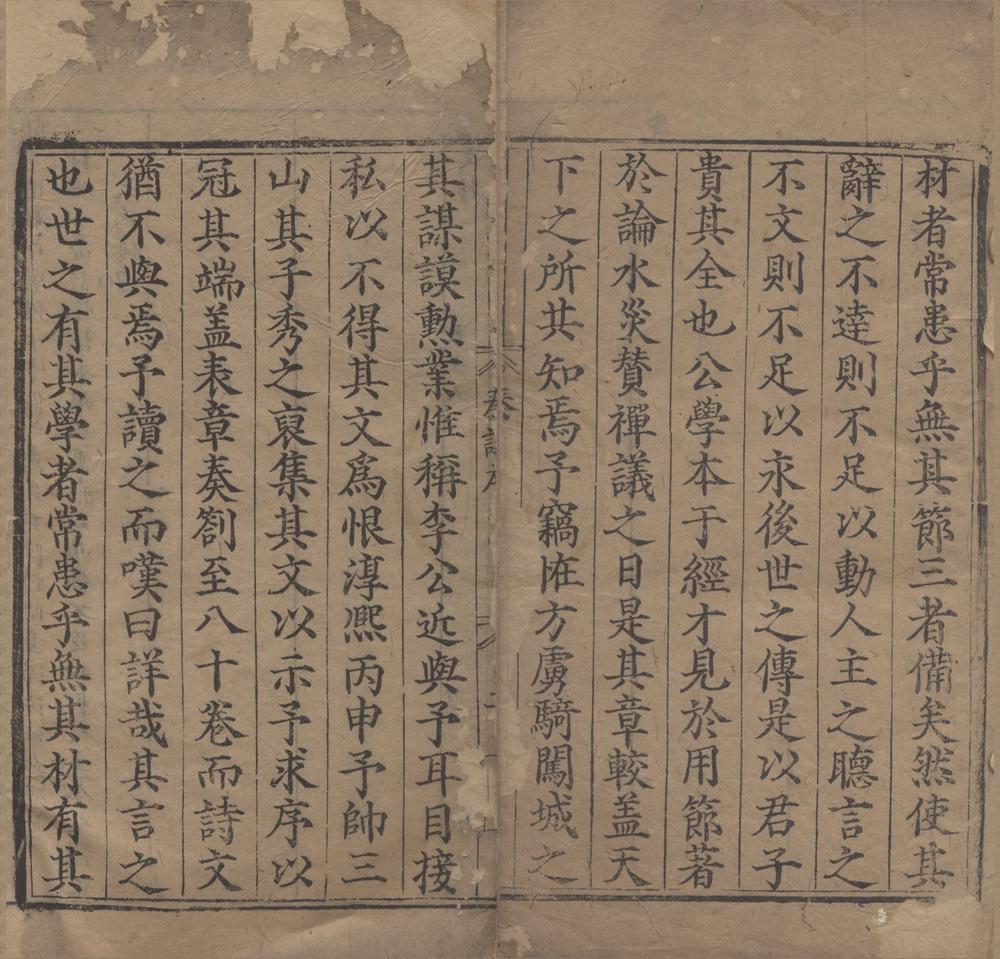 材者常患乎無其節三者備矣然使其
辭之不達則不足以動人主之聽言之
不文則不足以永後世之傳是以君子
貴其全也公學本于經才見於用節著
於論水災贊禪議之日是其章較盖天
下之所共知焉予竊惟方虜騎闖城之
奏議序
其謀謨勳業惟稱李公近與予耳目接
私以不得其文爲恨淳熈丙申予帥三
山其子秀之裒集其文以示予求序以
冠其端盖表章奏劄至八十卷而詩文
猶不與焉予讀之而嘆曰詳哉其言之
也世之有其學者常患乎無其材有其